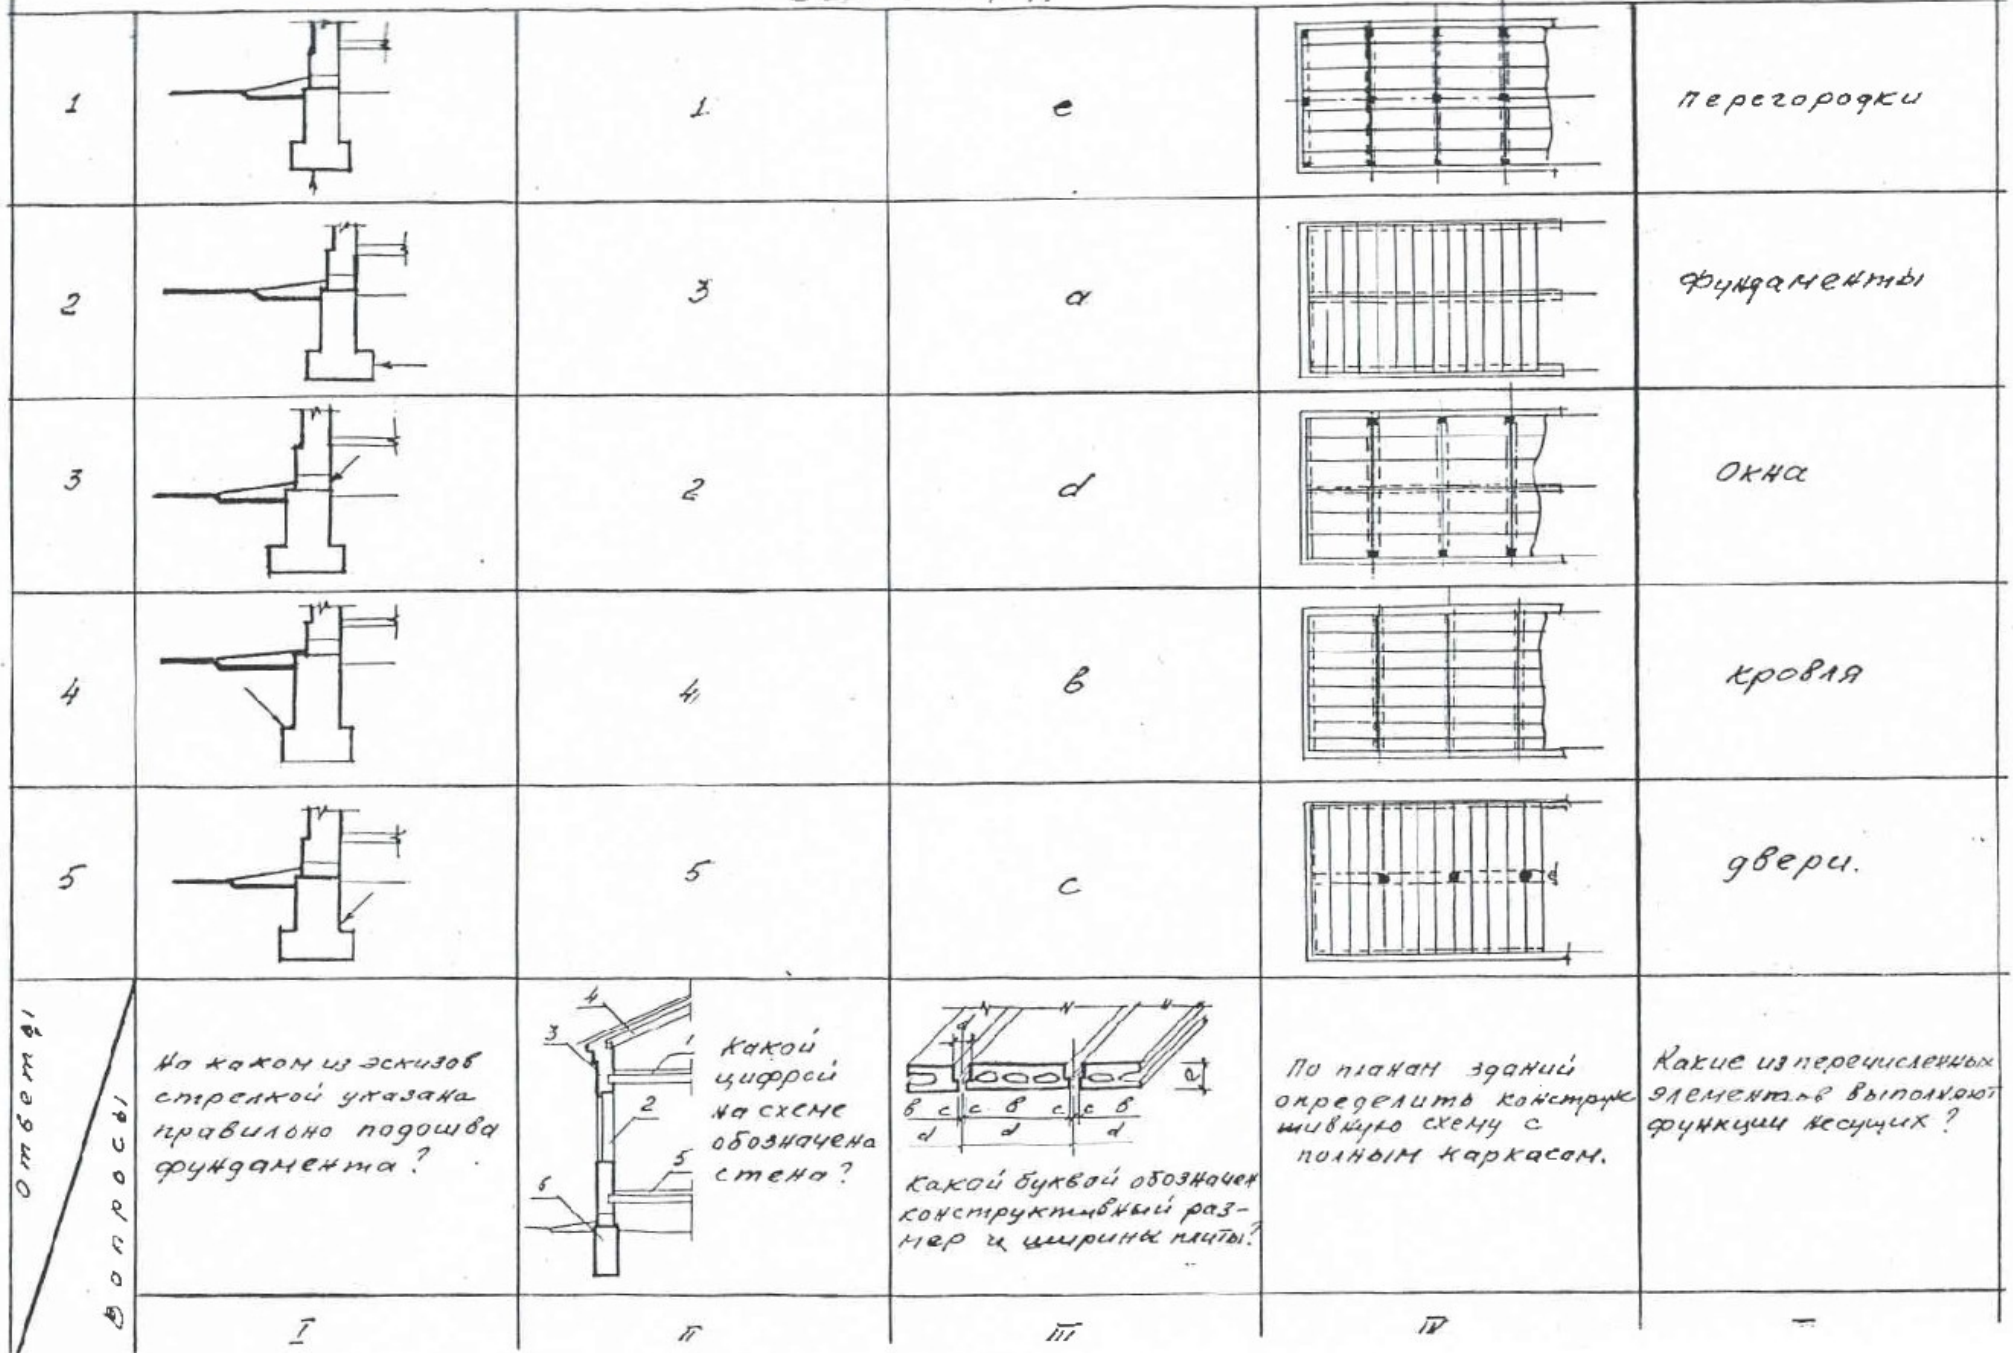 1
1
е
перегородки
2
3
а
фундаменты
3
2
d
окна
4
4
в
кровля
5
5
с
двери.
Ответы
Вопросы
На каком из эскизов
стрелкой указана
правильно подошва
фундамента?
4
3
1
2
5
6
Какой
цифрой
на схеме
обозначена
стена?
а
е
в с с в с с в
d d d
Какой буквой обозначен
конструктивный раз-
мер ширины плиты?
По планам зданий
определить конструк
тивную схему с
полным каркасом.
Какие из перечисленных
элементов выполняют
функции несущих?
I
II
III
IV